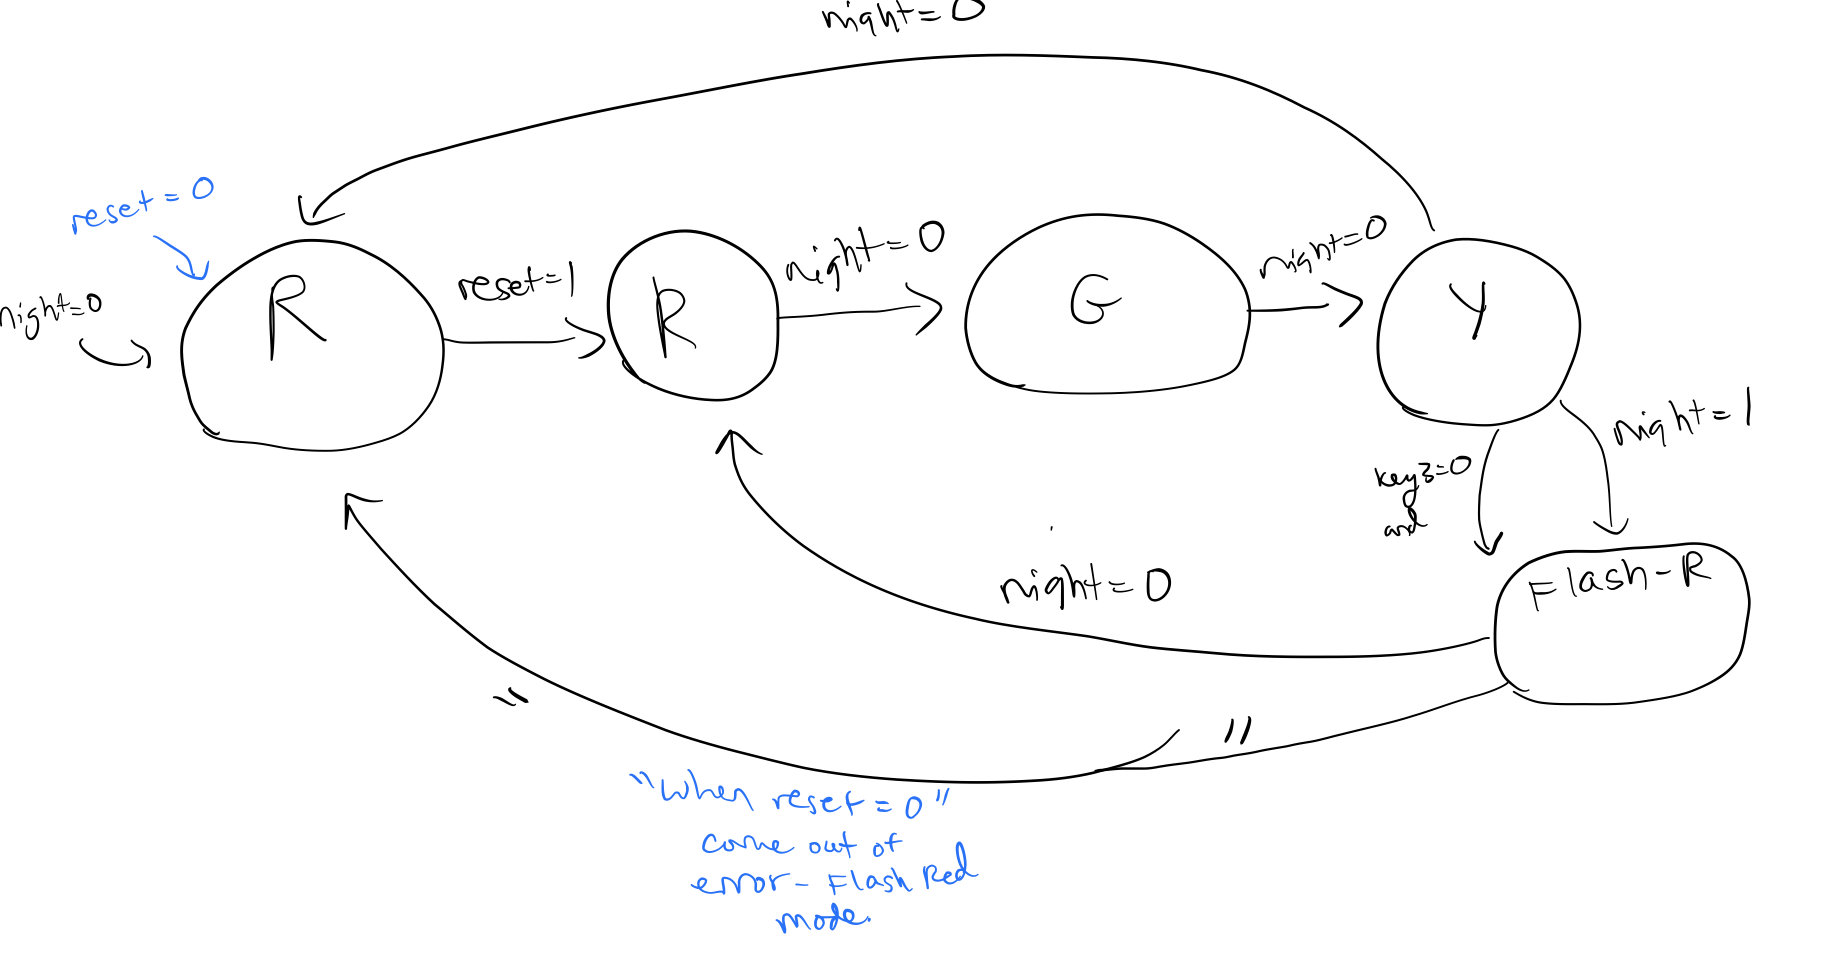 night=0
reset=0
night=0
R
reset=1
R
night=0
G
night=0
Y
night=1
key3=0
and
Flash-R
night=0
"
"
"When reset=0"
come out of
error- Flash Red
mode.